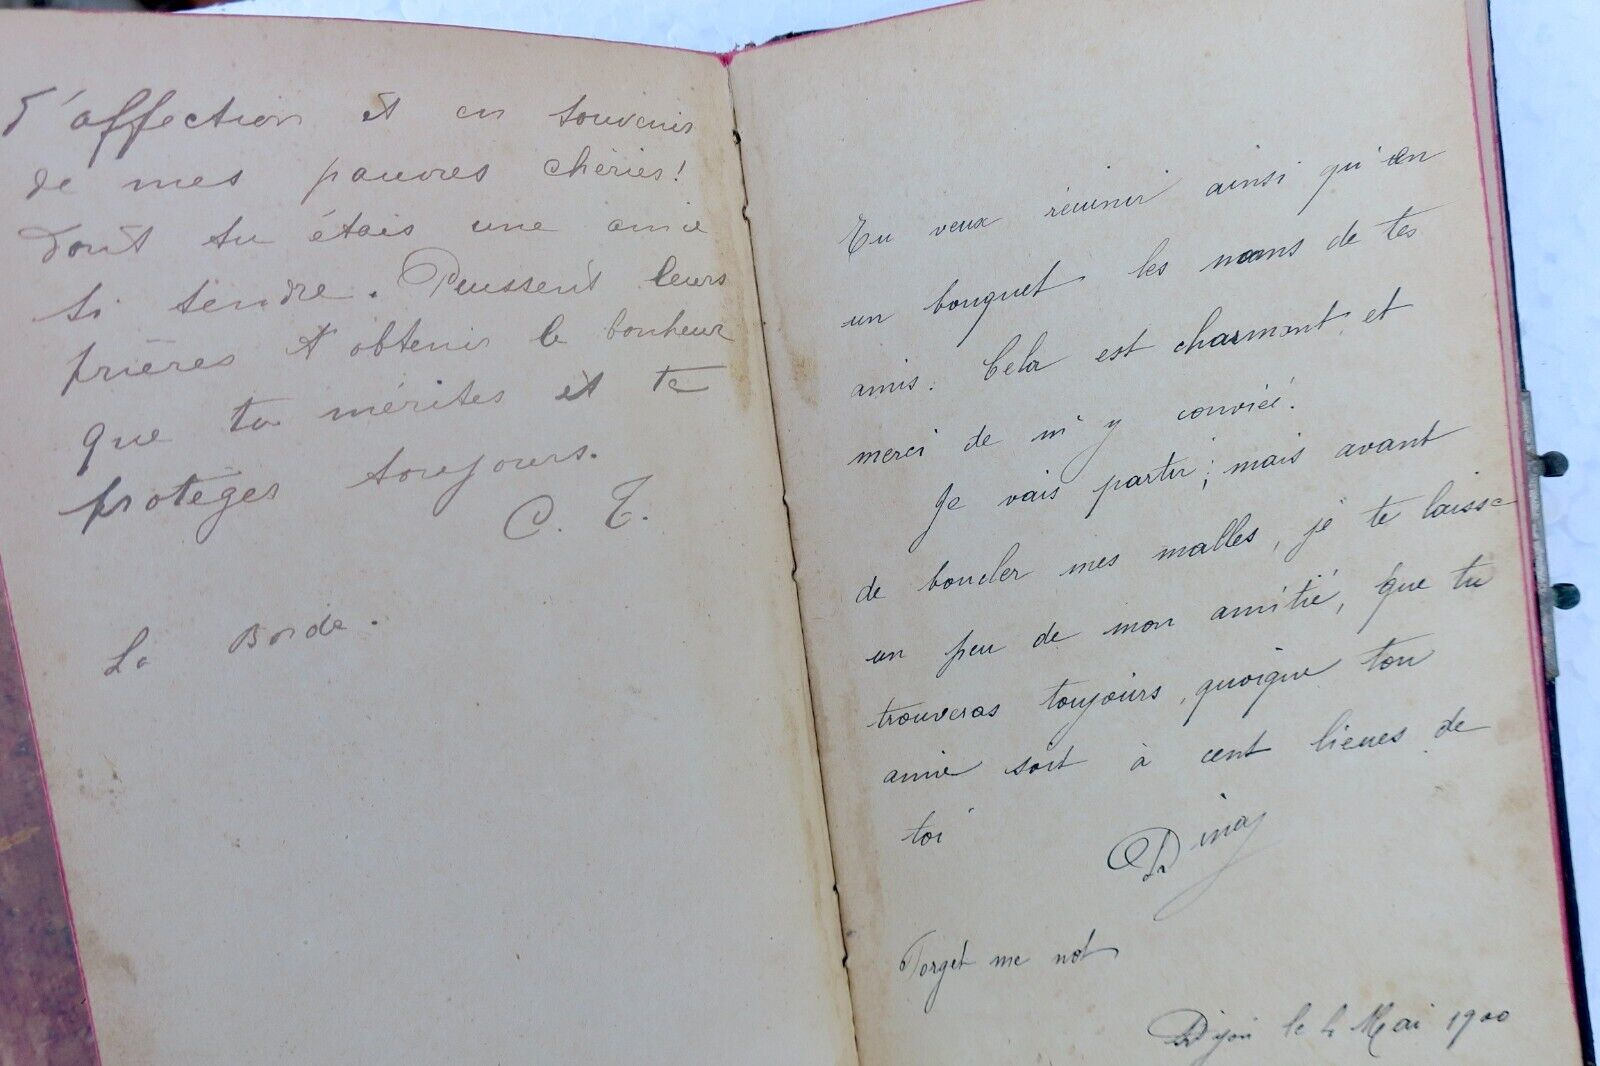 d'affection et en souvenir
de mes pauvres chéries!
dont tu étais une amie
si tendre. Puissent leurs
prières t'obtenir le bonheur
que tu mérites et te
protéges toujours.
C. T.
La Borde.
Tu veux réunir ainsi qu'en
un bouquet les noms de tes
amis. Cela est charmant et
merci de m'y convier.
Je vais partir; mais avant
de boucler mes malles, je te laisse
un peu de mon amitié, que tu
trouveras toujours, quoique ton
amie soit à cent lieues de
toi
Dina
Forget me not
Dijon le 4 Mai 1900